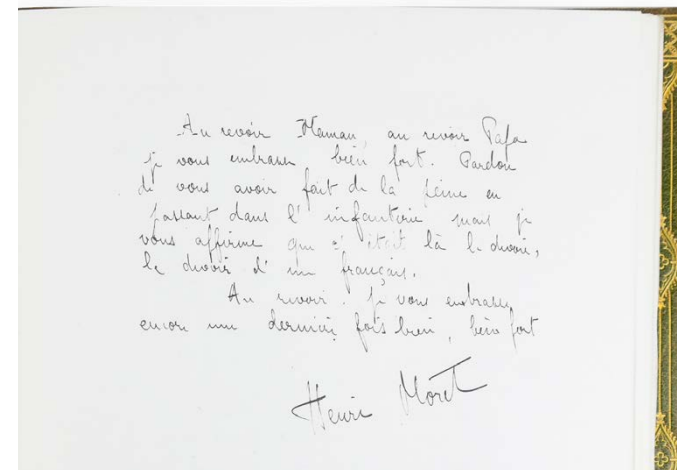 Au revoir Maman, au revoir Papa
je vous embrasse bien fort. Pardon
de vous avoir fait de la peine en
passant dans l'infanterie mais je
vous affirme que c'était là le devoir,
le devoir d'un français.
Au revoir. Je vous embrasse
encore une dernière fois bien, bien fort
Henri Moret